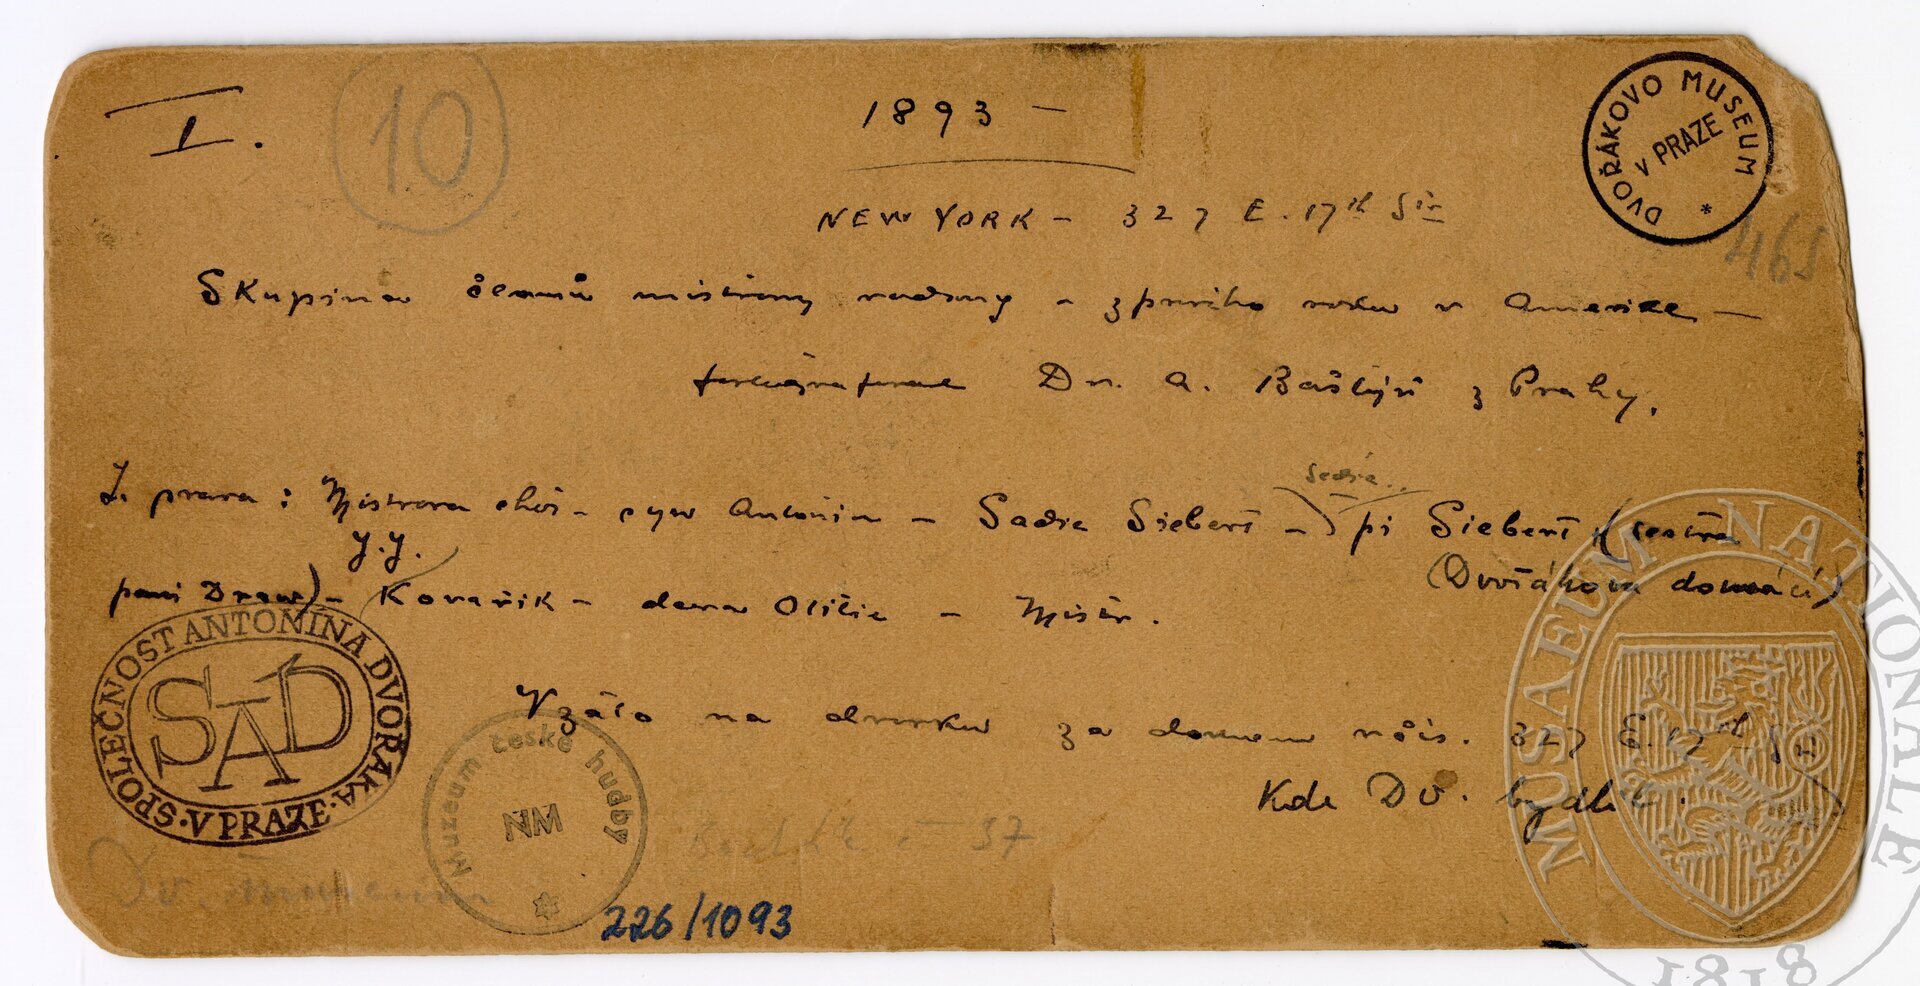 I.
10
1893 –
DVOŘÁKOVO MUSEUM V PRAZE *
465
NEW YORK – 327 E. 17th Str
Skupina členů mistrovy rodiny – z prvího roku v Americe –
Dr. A. Baštýř z Prahy.
Z. prava: Mistrova choť – syn Antonín – Sadie Siebert –) pí Siebert (sestra
sedia..
paní Drew) – J.J. Kovařík – dcera Otilie – Mistr.
(Dvořákova domácí)
Vzáto na dvorku za domem nčís. 327 E. 17th
Kde Dv. bydlel.
SPOLEČNOST ANTONÍNA DVOŘÁKA · V PRAZE ·
SAD
Muzeum české hudby
NM
37
Dv. museum
226/1093
MUSAEUM NATIONALE
1818